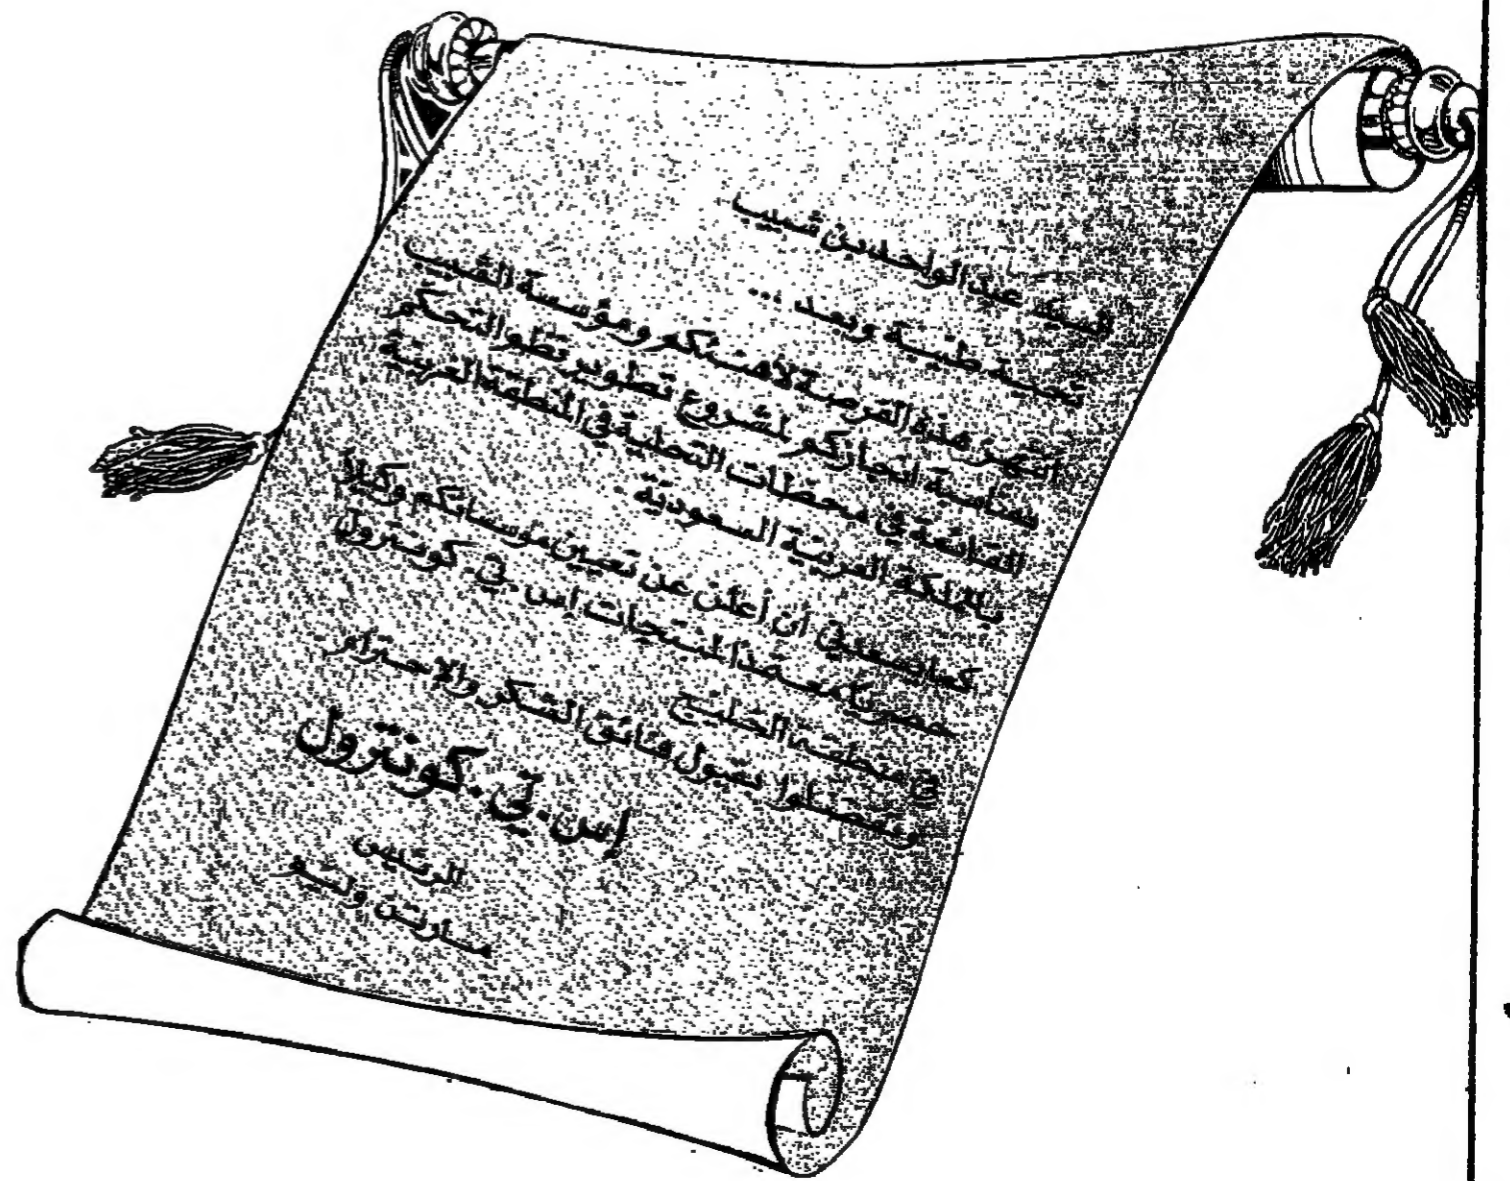 السيد عبد الواحد بن شبيب
تحية طيبة وبعد ...
أنتهز هذه الفرصة لأهنئكم ومؤسسة الشبيب
بمناسبة انجازكم لمشروع تطوير نظم التحكم
القائمة في محطات التحلية في المنطقة الغربية
بالمملكة العربية السعودية .
كما يسعدني أن أعلن عن تعيين مؤسساتكم وكيلا
حصريا معتمدا لمنتجات إس . تي . كونترول
في منطقة الخليج
وتفضلوا بقبول فائق الشكر والاحترام
إس . تي . كونترول
الرئيس
مارتن